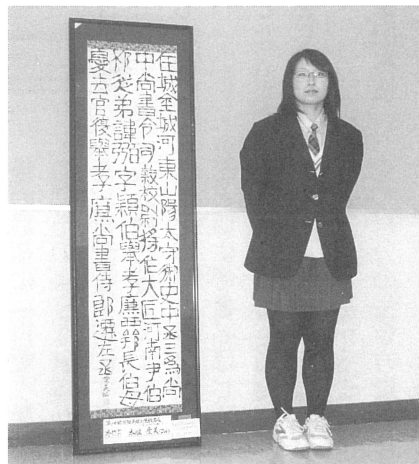 任城金城河東山陽太守御史中丞三為尚
書尚書令司隸校尉將作大匠河南尹伯
邳從弟諱弼字穎伯舉孝廉西鄂長伯母
憂去官復舉孝廉尚書侍郎遷左丞